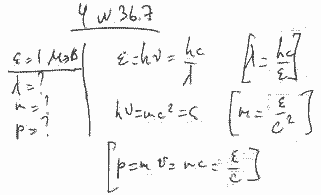 4 и 36.7
ε = 1 МэВ
λ = ?
m = ?
p = ?
ε = hν = hc/λ
[λ = hc/ε]
hν = mc² = ε
[m = ε/c²]
[p = m v = mc = ε/c]